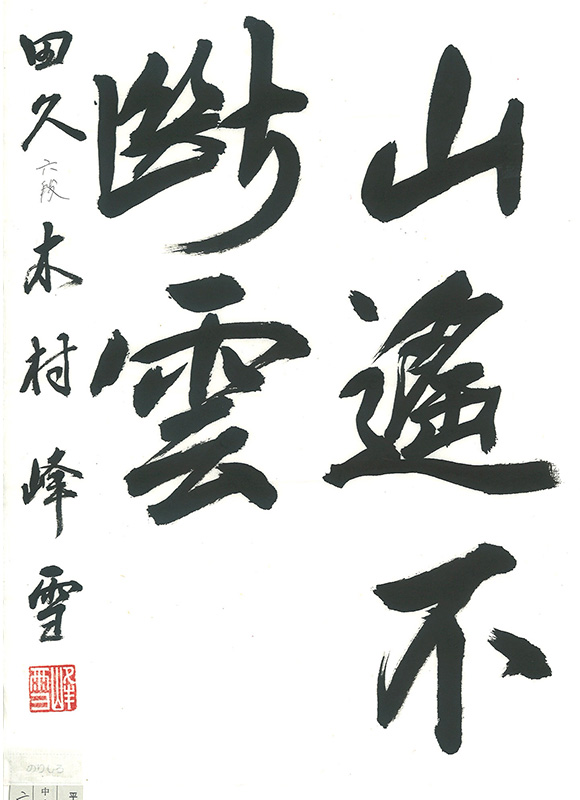 山遙不
斷雲
田久 六段 木村峰雪
峰雪
中
平